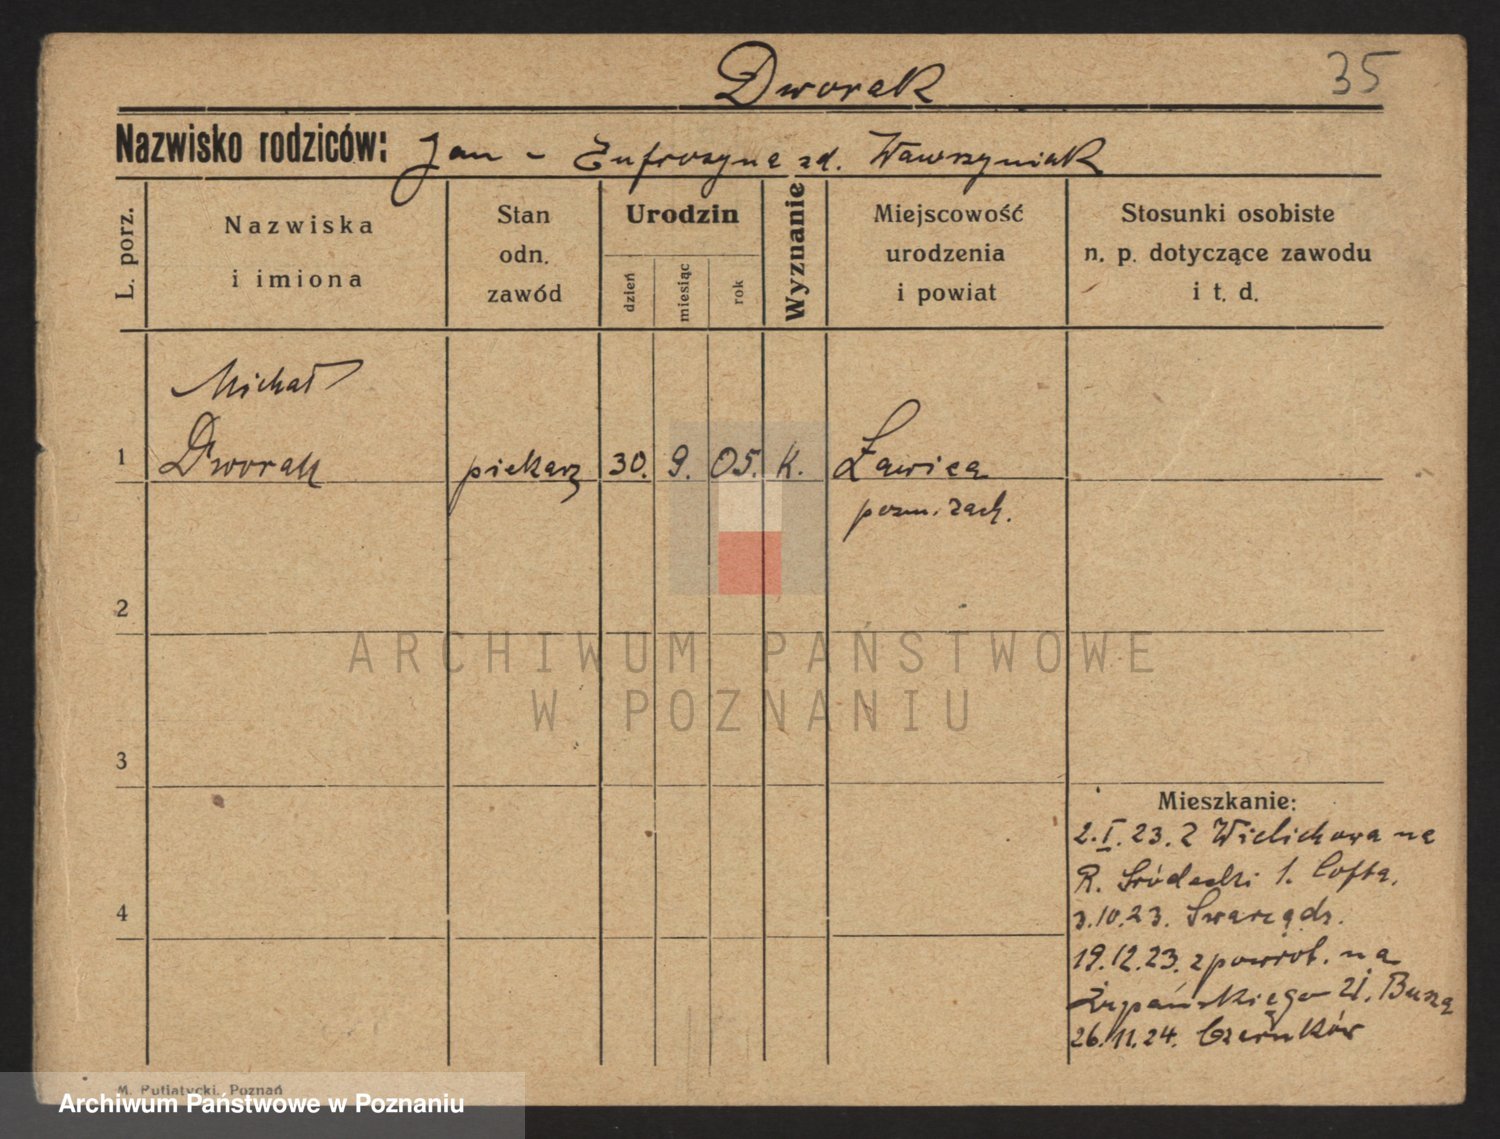 Dworak
35
Nazwisko rodziców: Jan - Eufrozyna zd. Wawrzyniak
L. porz.
Nazwiska
i imiona
Stan
odn.
zawód
Urodzin
dzień
miesiąc
rok
Wyznanie
Miejscowość
urodzenia
i powiat
Stosunki osobiste
n. p. dotyczące zawodu
i t. d.
1
Michał
Dworak
piekarz
30.
9.
05.
k.
Ławica
pozn. zach.
2
3
4
Mieszkanie:
2.I.23. z Wielichowa na
R. Śródecki 1. Cofta.
3.10.23. Swarzędz.
19.12.23. z powrot. na
Żupańskiego 21.
26.11.24. Czarnków
M. Putiatycki, Poznań
ARCHIWUM PAŃSTWOWE
W POZNANIU
Archiwum Państwowe w Poznaniu